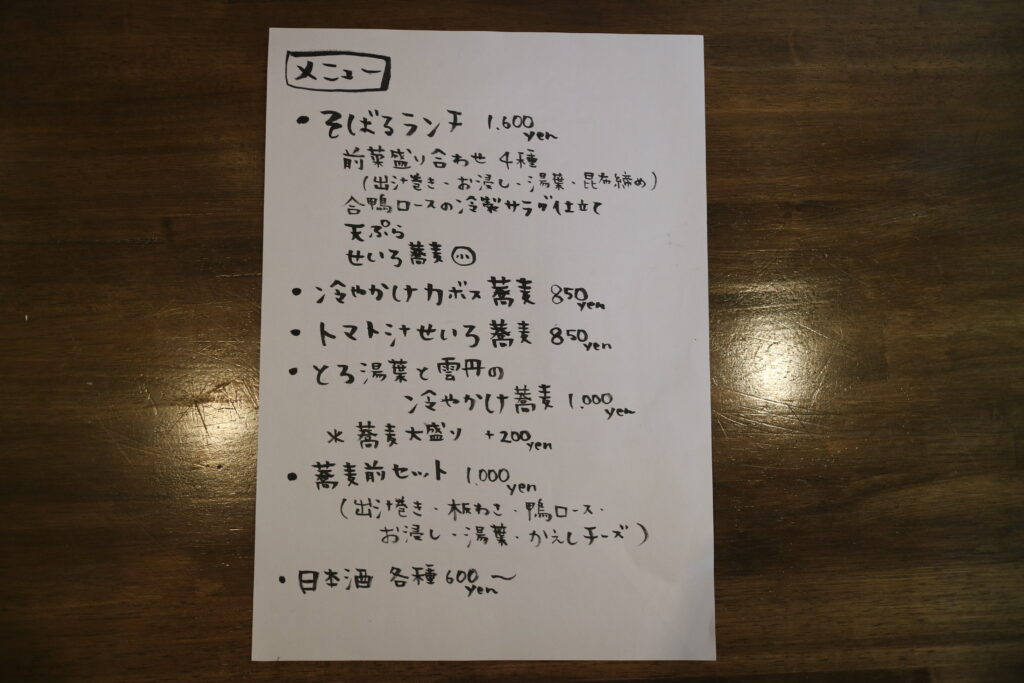 メニュー
・そばるランチ 1.600yen
前菜盛り合わせ 4種
(出汁巻き・お浸し・湯葉・昆布締め)
合鴨ロースの冷製サラダ仕立て
天ぷら
せいろ蕎麦 小
・冷やかけカボス蕎麦 850yen
・トマト汁せいろ蕎麦 850yen
・とろ湯葉と雲丹の
冷やかけ蕎麦 1.000yen
* 蕎麦大盛り +200yen
・蕎麦前セット 1.000yen
(出汁巻き・板わさ・鴨ロース・
お浸し・湯葉・かえしチーズ)
・日本酒 各種 600yen〜